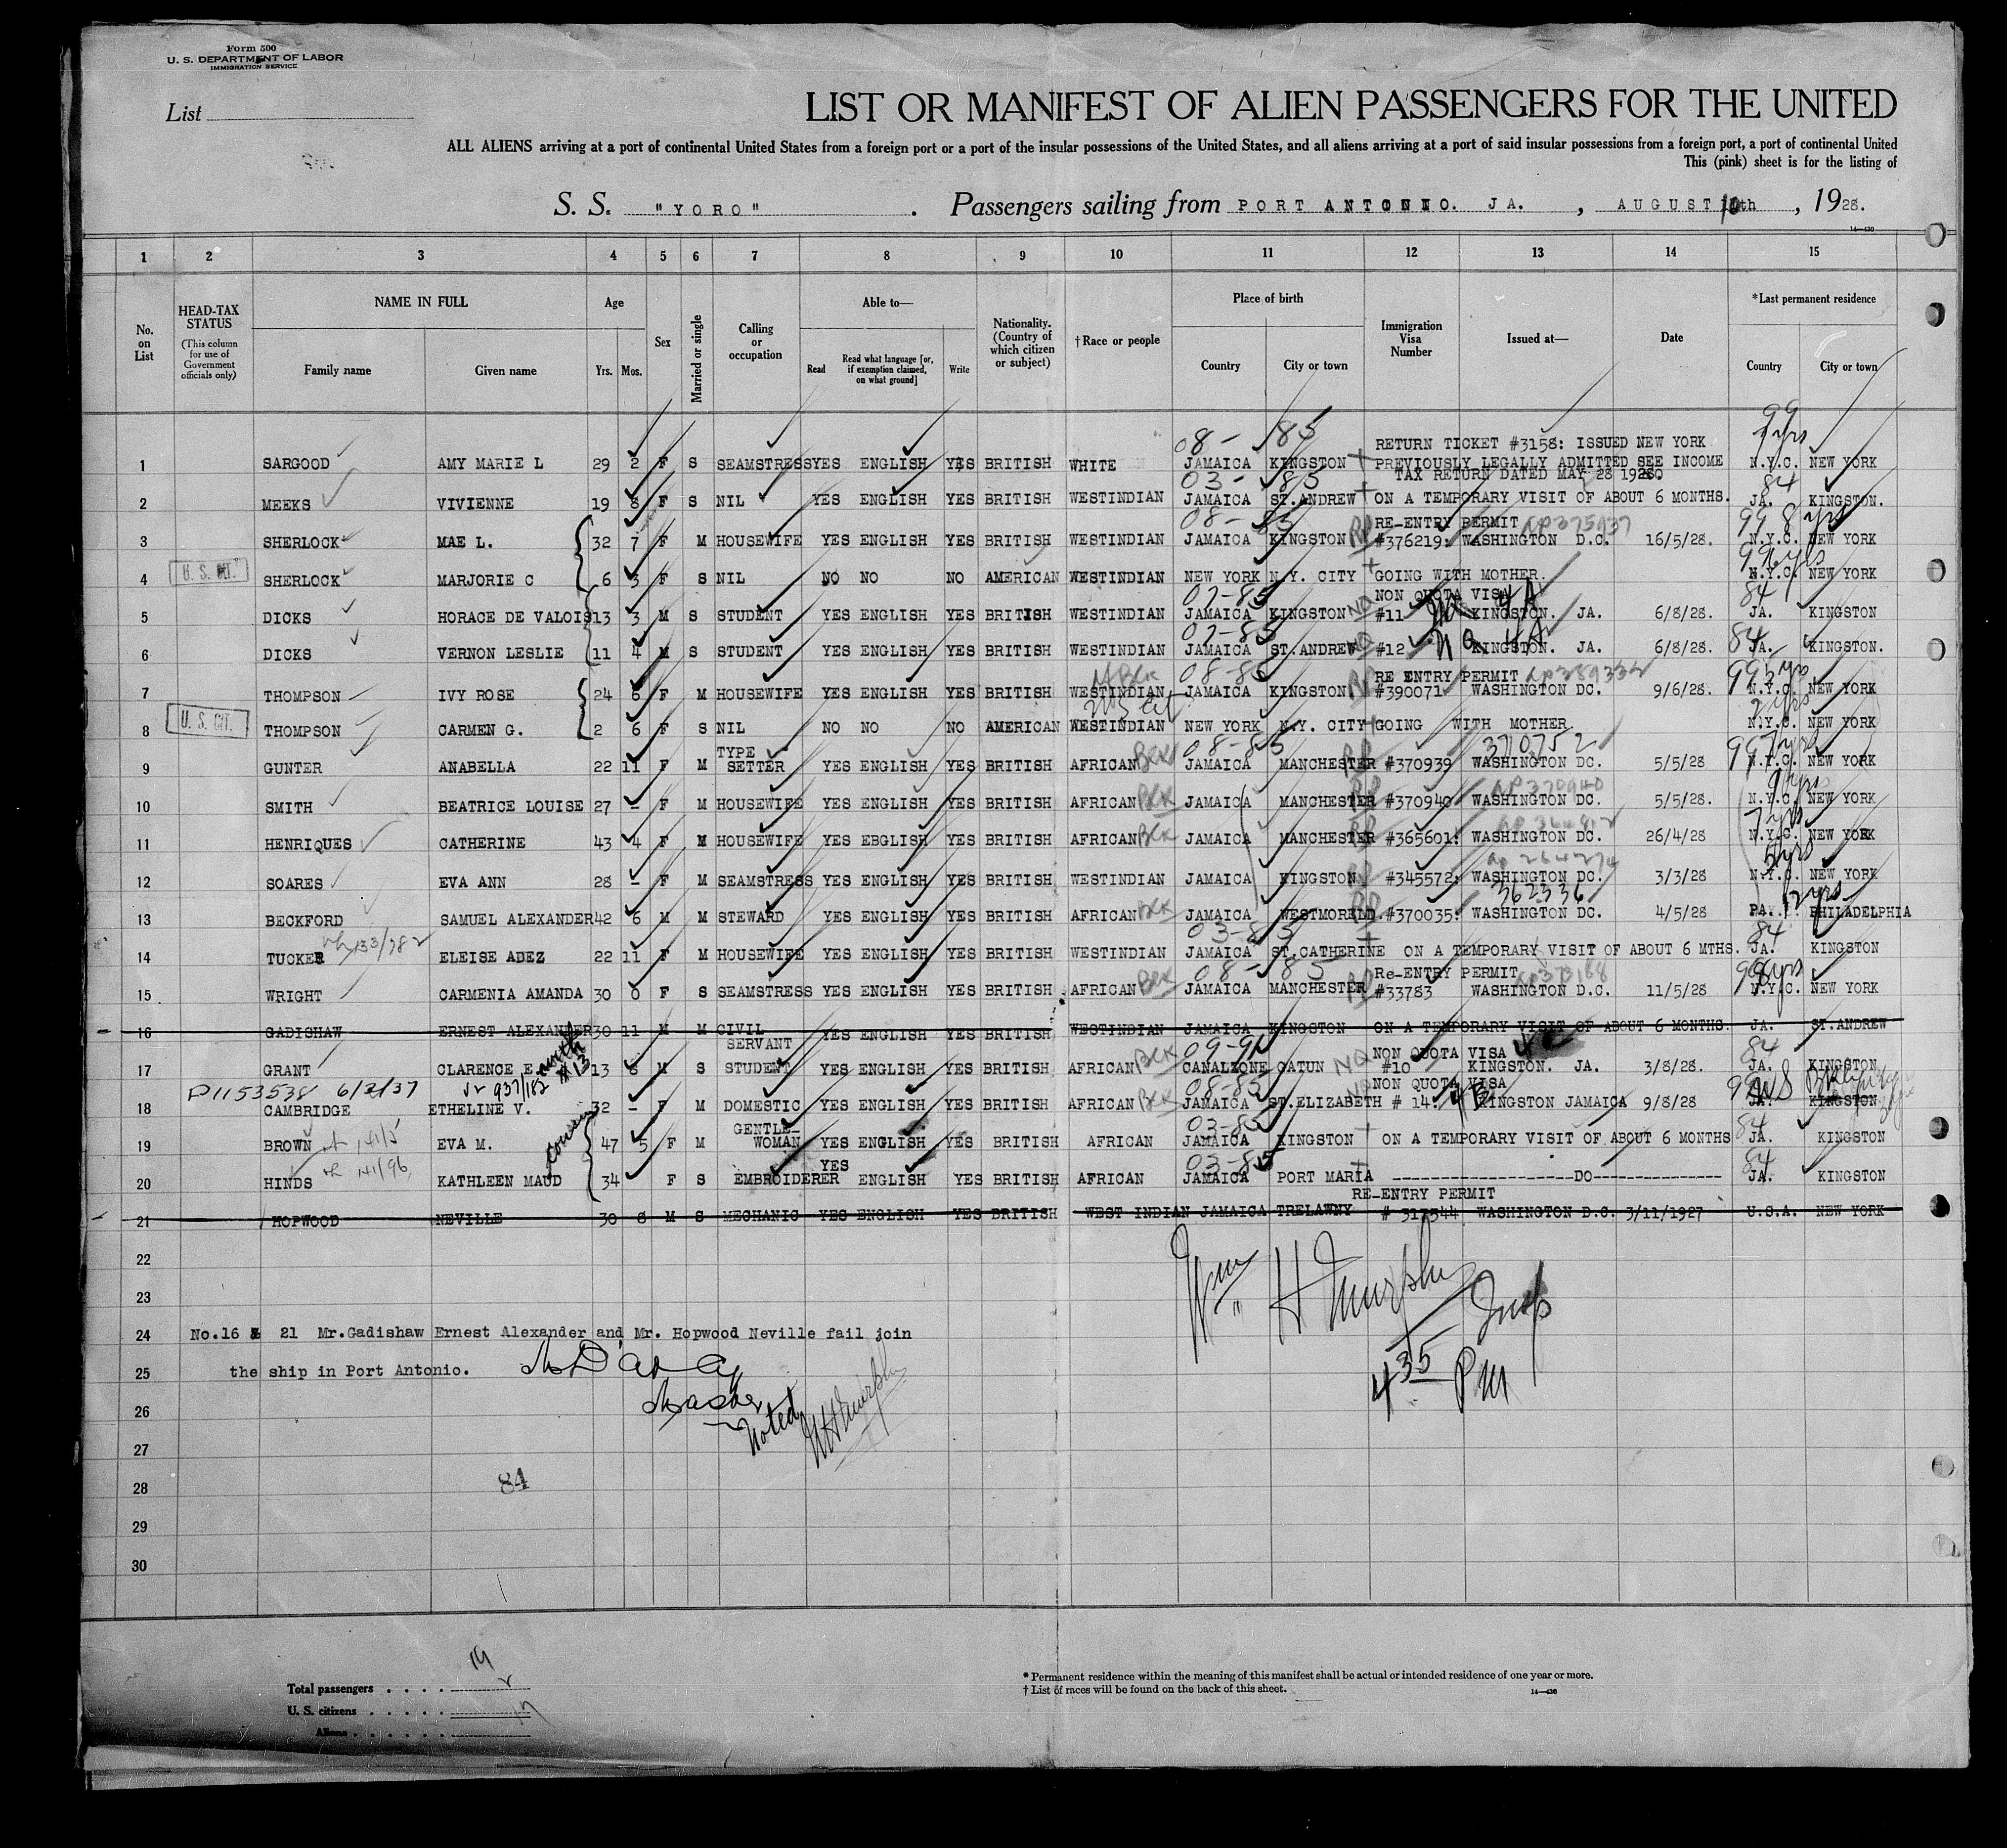 Form 500
U. S. DEPARTMENT OF LABOR
IMMIGRATION SERVICE
List
LIST OR MANIFEST OF ALIEN PASSENGERS FOR THE UNITED
ALL ALIENS arriving at a port of continental United States from a foreign port or a port of the insular possessions of the United States, and all aliens arriving at a port of said insular possessions from a foreign port, a port of continental United
This (pink) sheet is for the listing of
S. S. "YORO" . Passengers sailing from PORT ANTONIO. JA. , AUGUST 10th , 1928.
14—430
1 2 3 4 5 6 7 8 9 10 11 12 13 14 15
No. on List
HEAD-TAX STATUS (This column for use of Government officials only)
NAME IN FULL Family name Given name
Age Yrs. Mos.
Sex
Married or single
Calling or occupation
Able to— Read Read what language [or, if exemption claimed, on what ground] Write
Nationality. (Country of which citizen or subject)
†Race or people
Place of birth Country City or town
Immigration Visa Number
Issued at—
Date
*Last permanent residence Country City or town
08- 85 RETURN TICKET #3158: ISSUED NEW YORK 99
1 SARGOOD AMY MARIE L 29 2 F S SEAMSTRESS YES ENGLISH YES BRITISH WHITE JAMAICA KINGSTON PREVIOUSLY LEGALLY ADMITTED SEE INCOME N.Y.C. NEW YORK
03- 85 TAX RETURN DATED MAY 28 1928. 84
2 MEEKS VIVIENNE 19 8 F S NIL YES ENGLISH YES BRITISH WESTINDIAN JAMAICA ST.ANDREW ON A TEMPORARY VISIT OF ABOUT 6 MONTHS. JA. KINGSTON.
08- 85 RE-ENTRY PERMIT RP375937 99 8 yrs
3 SHERLOCK MAE L. 32 7 F M HOUSEWIFE YES ENGLISH YES BRITISH WESTINDIAN JAMAICA KINGSTON RP #376219: WASHINGTON D.C. 16/5/28. N.Y.C. NEW YORK
U. S. CIT. 99 6 yrs
4 SHERLOCK MARJORIE C 6 3 F S NIL NO NO NO AMERICAN WESTINDIAN NEW YORK N.Y. CITY GOING WITH MOTHER. N.Y.C. NEW YORK
07-85 NON QUOTA VISA 84
5 DICKS HORACE DE VALOIS 13 3 M S STUDENT YES ENGLISH YES BRITISH WESTINDIAN JAMAICA KINGSTON NQ #11 4A KINGSTON. JA. 6/8/28. JA. KINGSTON
07-85 84
6 DICKS VERNON LESLIE 11 4 M S STUDENT YES ENGLISH YES BRITISH WESTINDIAN JAMAICA ST.ANDREW NQ #12 NQ 4A KINGSTON. JA. 6/8/28. JA. KINGSTON.
08-85 RE ENTRY PERMIT RP389332 99
7 THOMPSON IVY ROSE 24 6 F M HOUSEWIFE YES ENGLISH YES BRITISH WESTINDIAN JAMAICA KINGSTON RP #390071 WASHINGTON DC. 9/6/28. N.Y.C. NEW YORK
U. S. CIT. 2 yrs
8 THOMPSON CARMEN G. 2 6 F S NIL NO NO NO AMERICAN WESTINDIAN NEW YORK N.Y. CITY GOING WITH MOTHER. N.Y.C. NEW YORK
TYPE 08-85 370752 99 7yrs
9 GUNTER ANABELLA 22 11 F M SETTER YES ENGLISH YES BRITISH AFRICAN BLK JAMAICA MANCHESTER RP #370939 WASHINGTON DC. 5/5/28 N.Y.C. NEW YORK
RP370940 9 yrs
10 SMITH BEATRICE LOUISE 27 - F M HOUSEWIFE YES ENGLISH YES BRITISH AFRICAN BLK JAMAICA MANCHESTER RP #370940 WASHINGTON DC. 5/5/28. N.Y.C. NEW YORK
7 yrs
11 HENRIQUES CATHERINE 43 4 F M HOUSEWIFE YES EBGLISH YES BRITISH AFRICAN BLK JAMAICA MANCHESTER RP #365601: WASHINGTON DC. 26/4/28 N.Y.C. NEW YORK
RP 264274 5yrs
12 SOARES EVA ANN 28 - F M SEAMSTRESS YES ENGLISH YES BRITISH WESTINDIAN JAMAICA KINGSTON RP #345572: WASHINGTON DC. 3/3/28 N.Y.C. NEW YORK
362336 12 yrs
13 BECKFORD SAMUEL ALEXANDER 42 6 M M STEWARD YES ENGLISH YES BRITISH AFRICAN BLK JAMAICA WESTMORELD. RP #370035: WASHINGTON DC. 4/5/28 PA. PHILADELPHIA
133/782 03-85 84
14 TUCKER ELEISE ADEZ 22 11 F M HOUSEWIFE YES ENGLISH YES BRITISH WESTINDIAN JAMAICA ST.CATHERINE ON A TEMPORARY VISIT OF ABOUT 6 MTHS. JA. KINGSTON
08-85 Re-ENTRY PERMIT RP373188 99 8yrs
15 WRIGHT CARMENIA AMANDA 30 0 F S SEAMSTRESS YES ENGLISH YES BRITISH AFRICAN BLK JAMAICA MANCHESTER RP #33783 WASHINGTON D.C. 11/5/28 N.Y.C. NEW YORK
16 GADISHAW ERNEST ALEXANDER 30 11 M M CIVIL SERVANT YES ENGLISH YES BRITISH WESTINDIAN JAMAICA KINGSTON ON A TEMPORARY VISIT OF ABOUT 6 MONTHS. JA. ST.ANDREW
with #13 09-91 NON QUOTA VISA 84
17 GRANT CLARENCE E. 13 6 M S STUDENT YES ENGLISH YES BRITISH AFRICAN BLK CANALZONE GATUN NQ #10 KINGSTON. JA. 3/8/28. JA. KINGSTON
P1153538 6/2/37 937/182 08-85 NQ NON QUOTA VISA 99
18 CAMBRIDGE ETHELINE V. 32 - F M DOMESTIC YES ENGLISH YES BRITISH AFRICAN BLK JAMAICA ST.ELIZABETH # 14. 4B KINGSTON JAMAICA 9/8/28 JA. KINGSTON
cousin GENTLE- 03-85 84
19 BROWN 141/5 EVA M. 47 5 F M WOMAN YES ENGLISH YES BRITISH AFRICAN JAMAICA KINGSTON ON A TEMPORARY VISIT OF ABOUT 6 MONTHS JA. KINGSTON
141/96 03-85 84
20 HINDS KATHLEEN MAUD 34 F S EMBROIDERER YES ENGLISH YES BRITISH AFRICAN JAMAICA PORT MARIA --------------------DO-------------- JA. KINGSTON
RE-ENTRY PERMIT
21 HOPWOOD NEVILLE 30 8 M S MECHANIC YES ENGLISH YES BRITISH WEST INDIAN JAMAICA TRELAWNY # 317544 WASHINGTON D.C. 3/11/1927 U.S.A. NEW YORK
22
23
Wm H Murphy Insp
24 No.16 & 21 Mr.Gadishaw Ernest Alexander and Mr. Hopwood Neville fail join
25 the ship in Port Antonio.
4 35 PM
26 Master
Noted WHMurphy
27
28 84
29
30
19
Total passengers
2
U. S. citizens
17
Aliens
* Permanent residence within the meaning of this manifest shall be actual or intended residence of one year or more.
† List of races will be found on the back of this sheet.
14—430